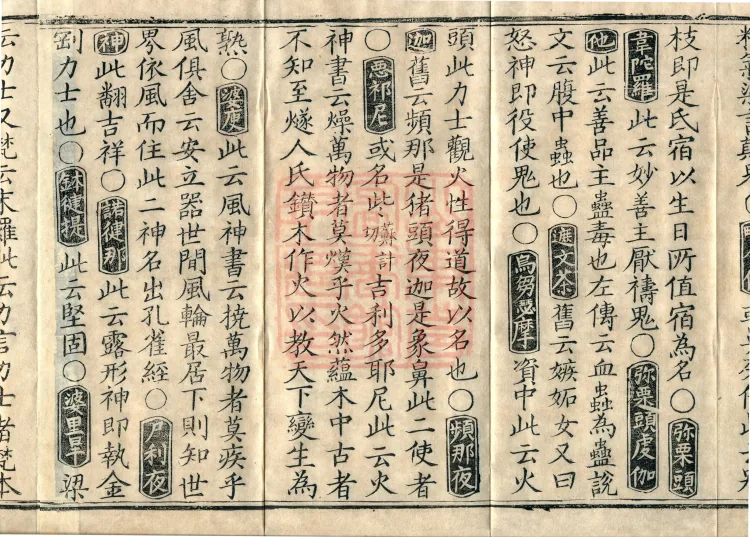 枝即是氏宿以生日所值宿為名○弥栗頭
韋陀羅此云妙善主厭禱鬼○弥栗頭虔伽
他此云善品主蠱毒也左傳云血蟲為蠱說
文云腹中蟲也○遮文茶舊云嫉妬女又曰
怒神即役使鬼也○烏芻瑟摩資中此云火
頭此力士觀火性得道故以名也○頻那夜
迦舊云頻那是猪頭夜迦是象鼻此二使者
○悪祁尼或名些蘇計切吉利多耶尼此云火
神書云燥萬物者莫熯乎火然藴木中古者
不知至燧人氏鑚木作火以教天下變生為
熟○婆庾此云風神書云撓萬物者莫疾乎
風俱舍云安立器世間風輪最居下則知世
界依風而住此二神名出孔雀經○尸利夜
神此翻吉祥○諾健那此云露形神即執金
剛力士也○鉢健提此云堅固○婆里旱梁
云力士又梵云末羅此云力言力士者梵本